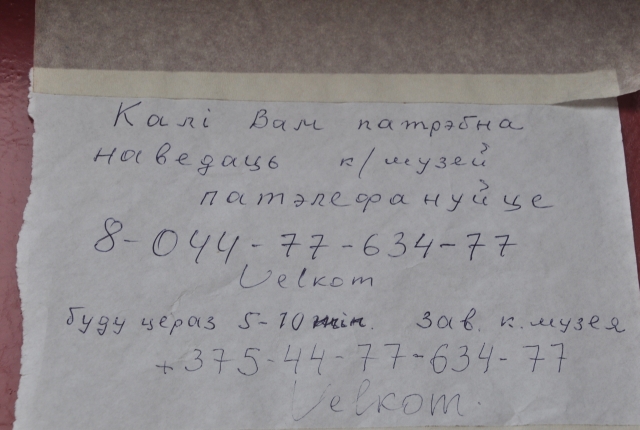 Калі Вам патрэбна
наведаць к/музей
патэлефануйце
8-044-77-634-77
Velkom
буду цераз 5-10 мін. Зав. к.музея
+375-44-77-634-77
Velkom.